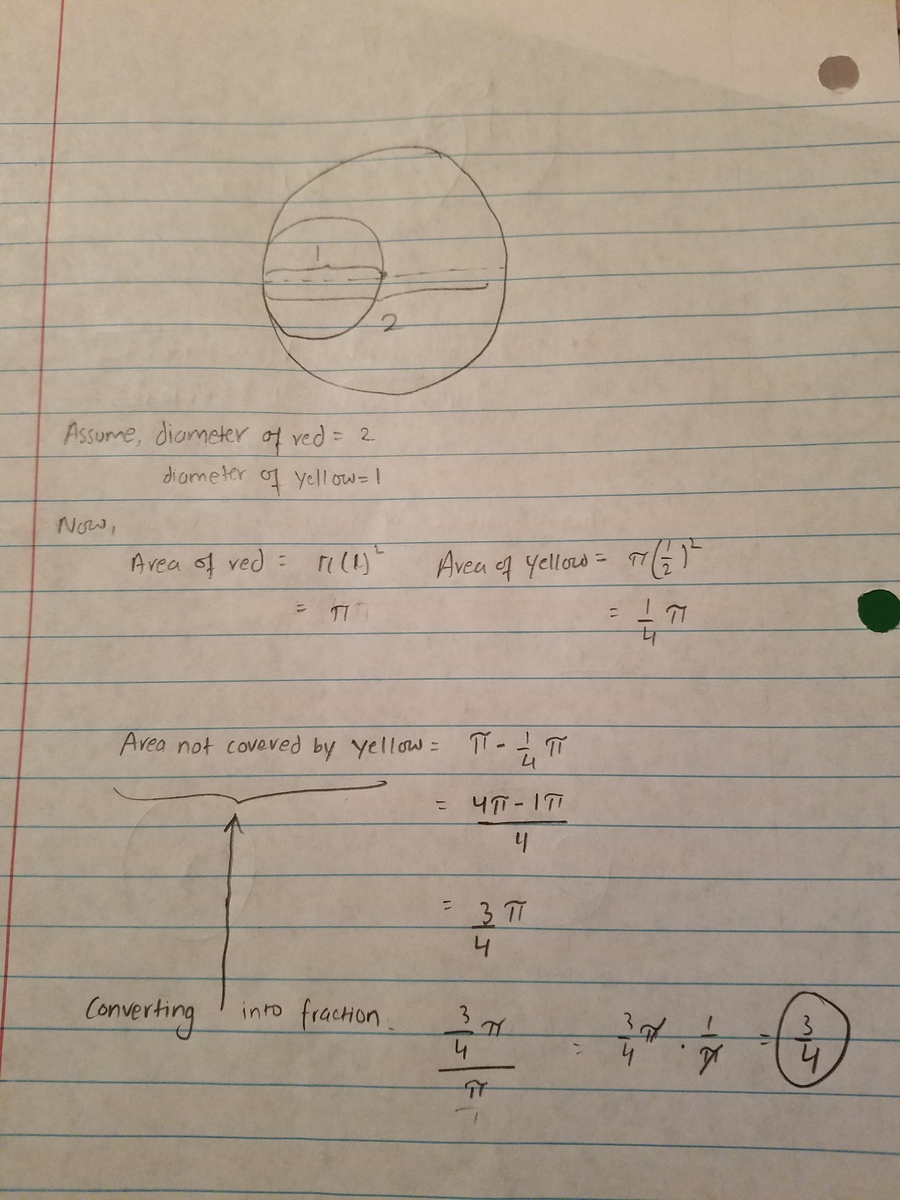 1
2
Assume, diameter of red = 2
diameter of yellow = 1
Now,
Area of red = π(1)² Area of yellow = π(1/2)²
= π = 1/4 π
Area not covered by yellow = π - 1/4 π
= (4π - 1π)/4
= 3/4 π
Converting into fraction. (3/4 π)/π = 3/4 π · 1/π = 3/4